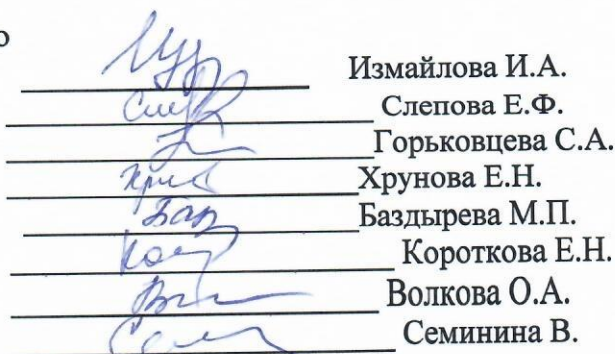 о
Измайлова И.А.
Слепова Е.Ф.
Горьковцева С.А.
Хрунова Е.Н.
Баздырева М.П.
Короткова Е.Н.
Волкова О.А.
Семинина В.